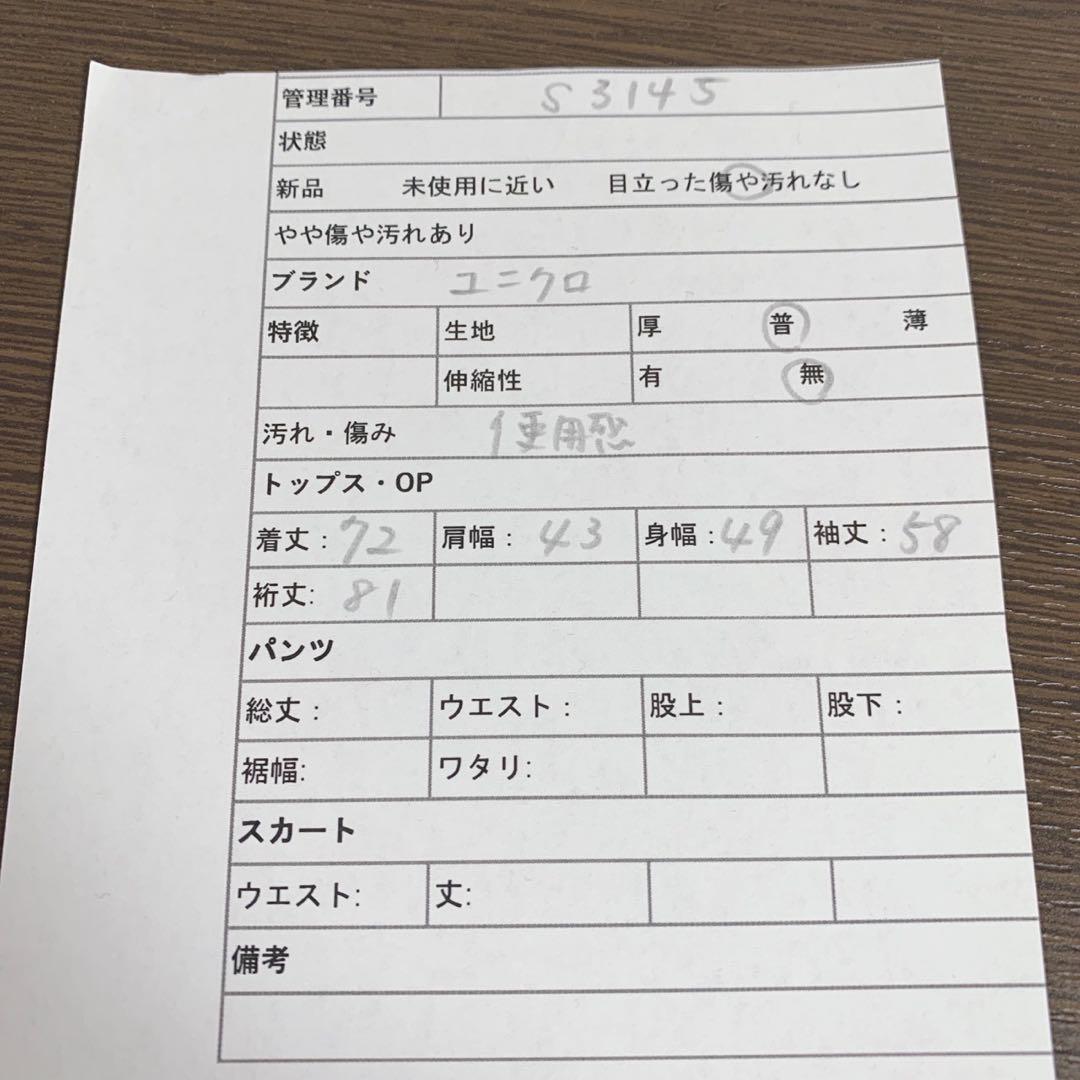 管理番号 S3145
状態
新品 未使用に近い 目立った傷や汚れなし
やや傷や汚れあり
ブランド ユニクロ
特徴 生地 厚 普 薄
伸縮性 有 無
汚れ・傷み 使用感
トップス・OP
着丈：72 肩幅：43 身幅：49 袖丈：58
裄丈: 81
パンツ
総丈： ウエスト： 股上： 股下：
裾幅: ワタリ:
スカート
ウエスト: 丈:
備考